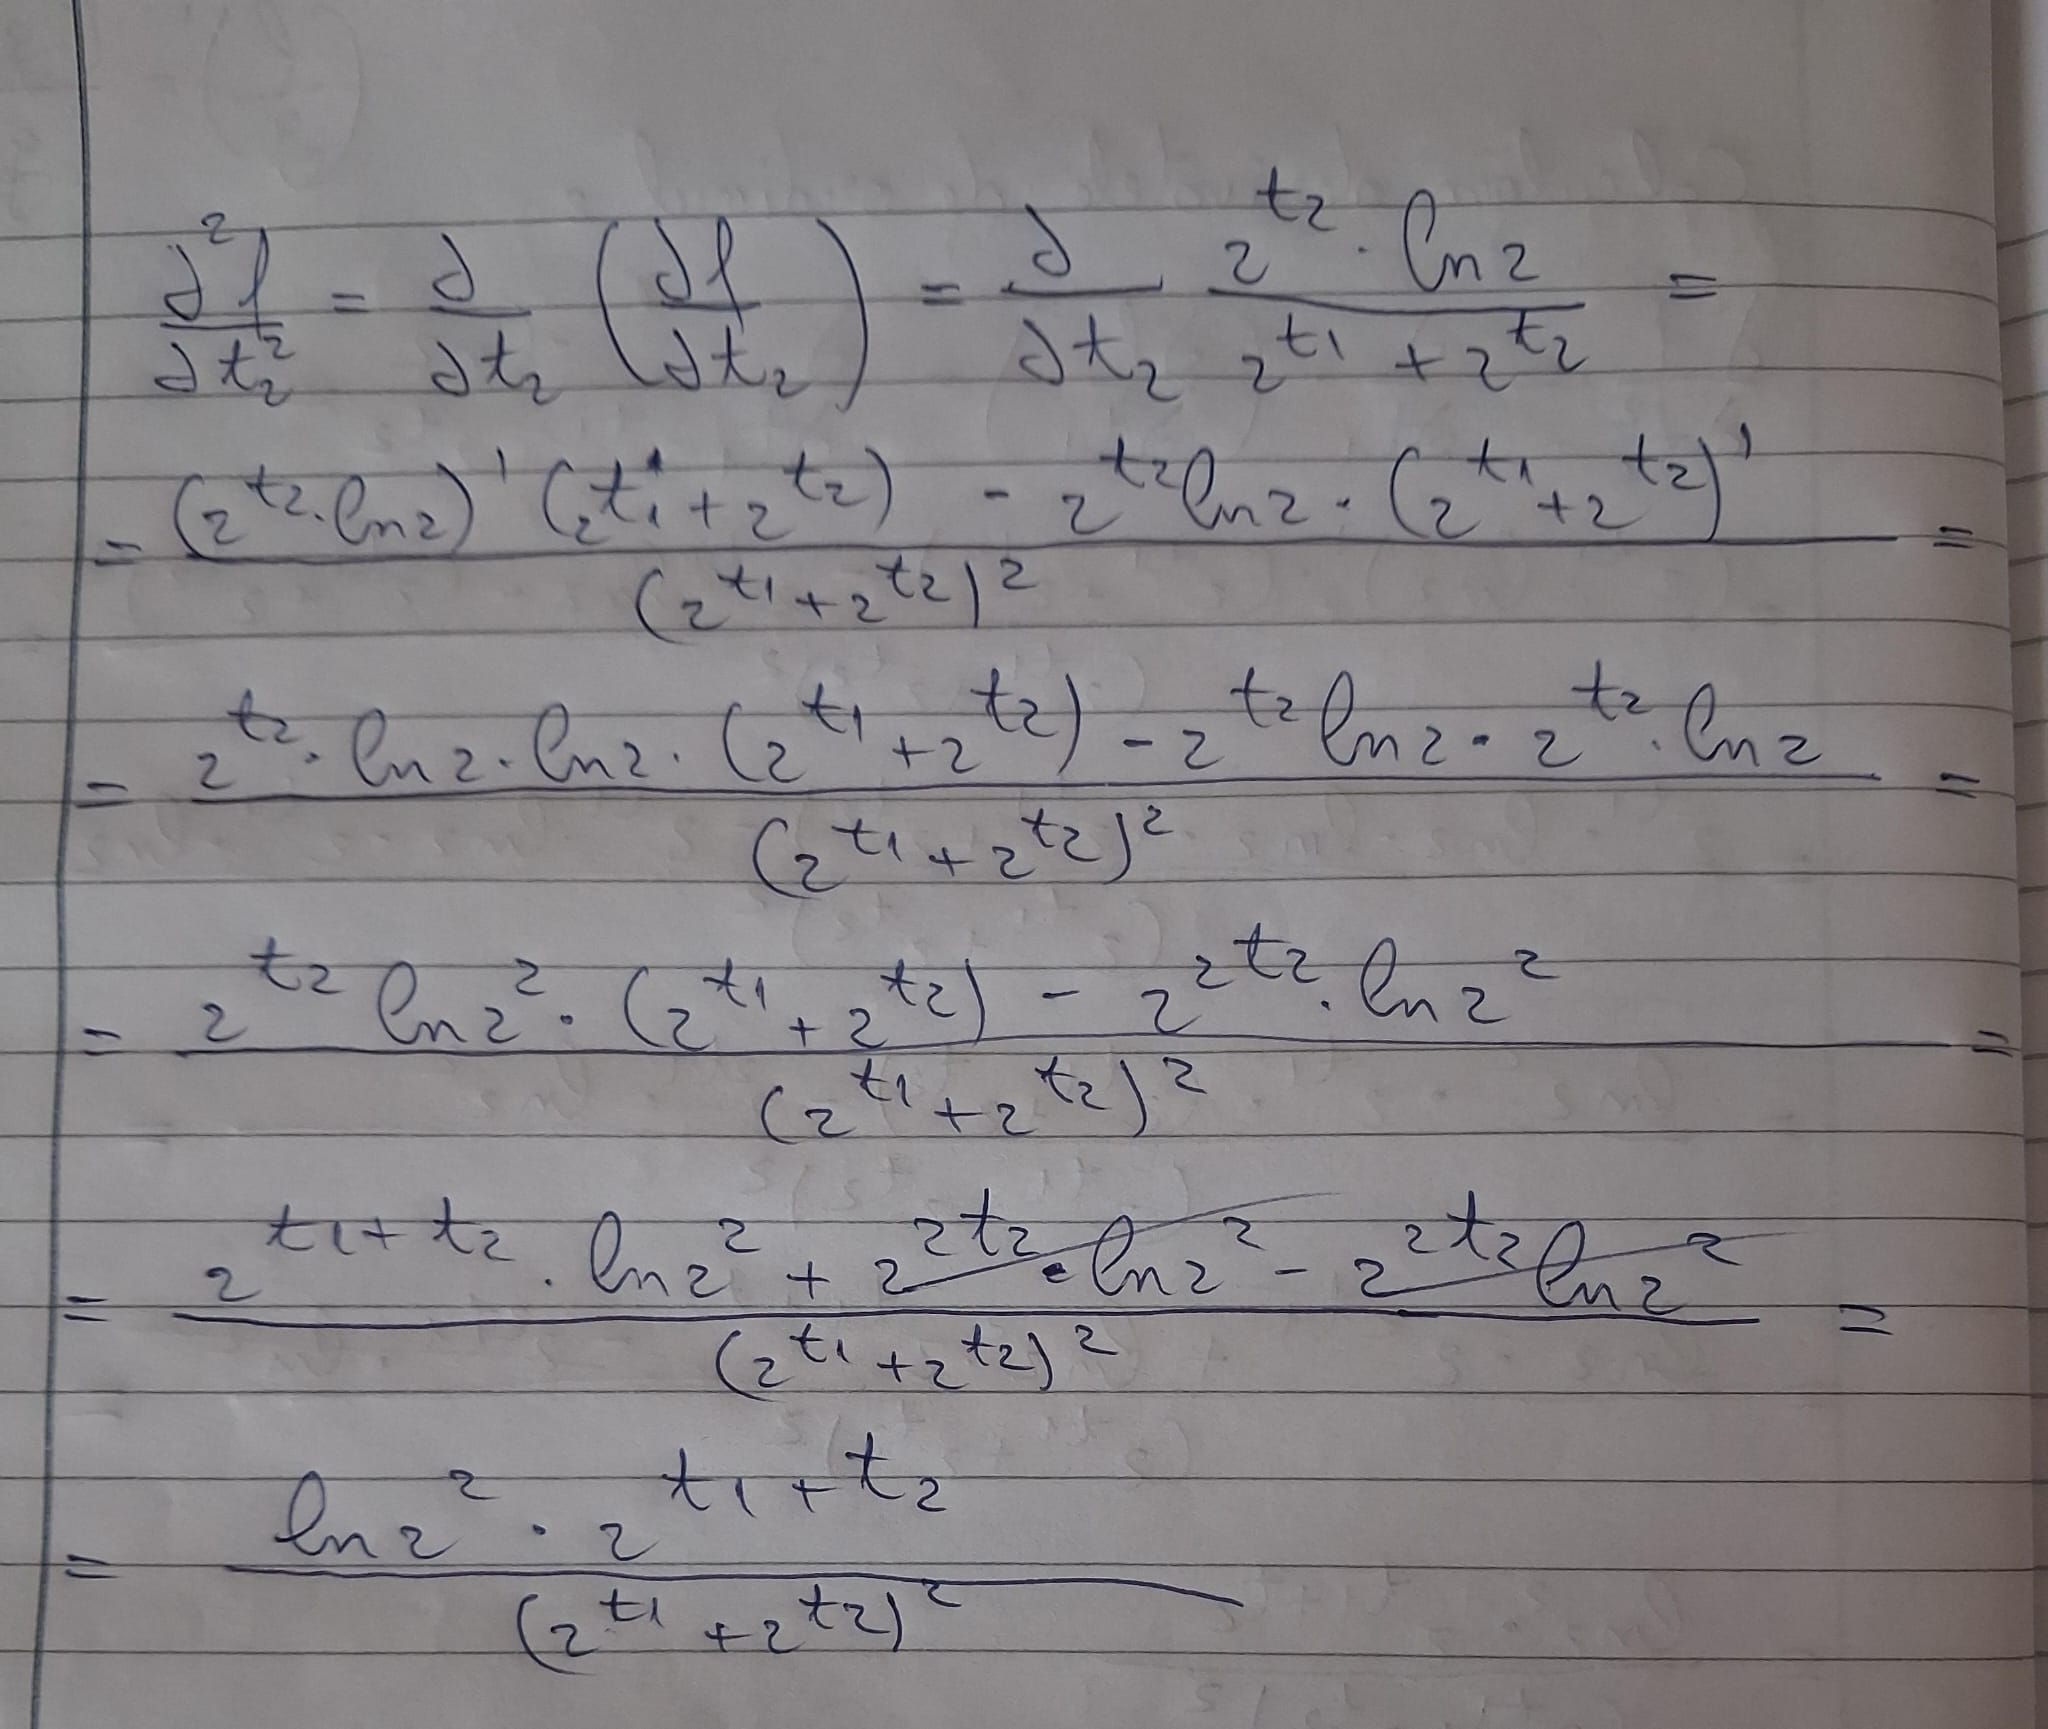 ∂²f/∂t₂² = ∂/∂t₂ (∂f/∂t₂) = ∂/∂t₂ (2^t₂ · ln2)/(2^t₁ + 2^t₂) =
= ((2^t₂ · ln2)' (2^t₁ + 2^t₂) - 2^t₂ ln2 · (2^t₁ + 2^t₂)')/(2^t₁ + 2^t₂)² =
= (2^t₂ · ln2 · ln2 · (2^t₁ + 2^t₂) - 2^t₂ ln2 · 2^t₂ · ln2)/(2^t₁ + 2^t₂)² =
= (2^t₂ ln2² · (2^t₁ + 2^t₂) - 2^2t₂ · ln2²)/(2^t₁ + 2^t₂)² =
= (2^(t₁+t₂) · ln2² + 2^2t₂ · ln2² - 2^2t₂ ln2²)/(2^t₁ + 2^t₂)² =
= (ln2² · 2^(t₁+t₂))/(2^t₁ + 2^t₂)²